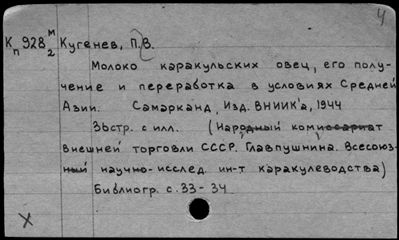 4
К п 928 м 2 Кугенев, П.В.
Молоко каракульских овец, его полу-
чение и переработка в условиях Средней
Азии. Самарканд, Изд. ВНИИК'а, 1944
36стр. с илл. (Народный комиссариат
внешней торговли СССР. Главпушнина. Всесоюз-
ный научно-исслед. ин-т каракулеводства)
Библиогр. с. 33-34
X